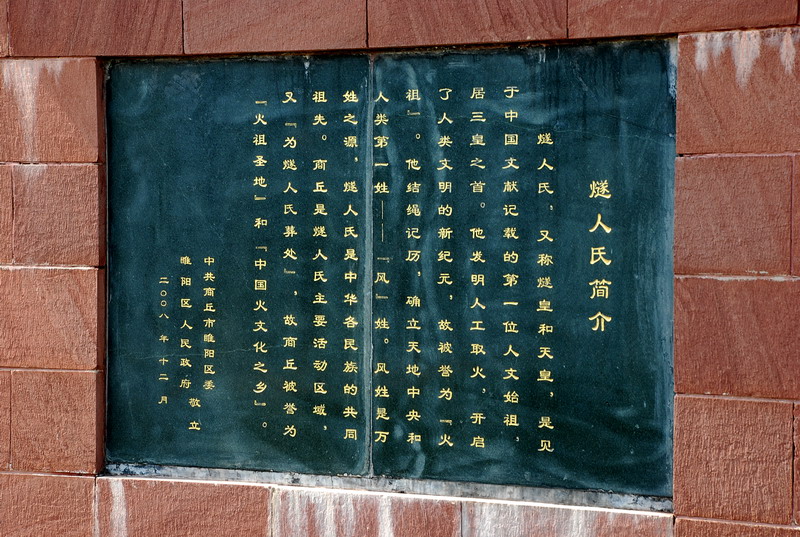 燧人氏简介
燧人氏，又称燧皇和天皇，是见
于中国文献记载的第一位人文始祖，
居三皇之首。他发明人工取火，开启
了人类文明的新纪元，故被誉为『火
祖』。他结绳记历，确立天地中央和
人类第一姓——『风』姓。风姓是万
姓之源，燧人氏是中华各民族的共同
祖先。商丘是燧人氏主要活动区域，
又『为燧人氏葬处』，故商丘被誉为
『火祖圣地』和『中国火文化之乡』。
中共商丘市睢阳区委
睢阳区人民政府 敬立
二〇〇八年十二月